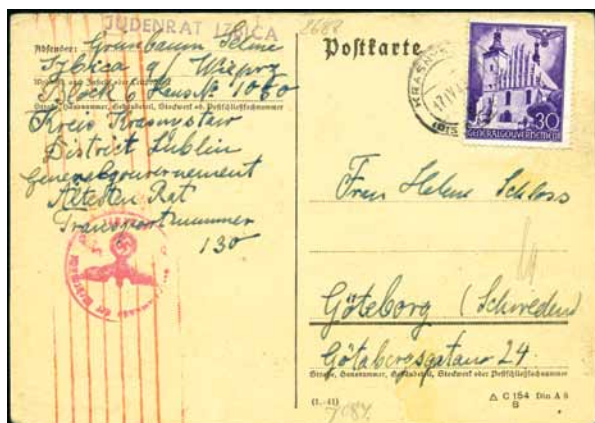 JUDENRAT IZBICA
2688
Absender: Grünbaum Selma
Izbica a/ Wieprz
Block 6 Haus № 1060
Straße, Hausnummer, Gebäudeteil, Stockwerk od. Postschließfachnummer
Kreis Krasnystaw
District Lublin
Generalgouvernement
Ältesten Rat
Transportnummer
130
Postkarte
30
GENERALGOUVERNEMENT
Frau Helene Schloss
Göteborg (Schweden)
Götabergsgatan 24.
Straße, Hausnummer, Gebäudeteil, Stockwerk oder Postschließfachnummer
(1.-41)
△ C 154 Din A 6